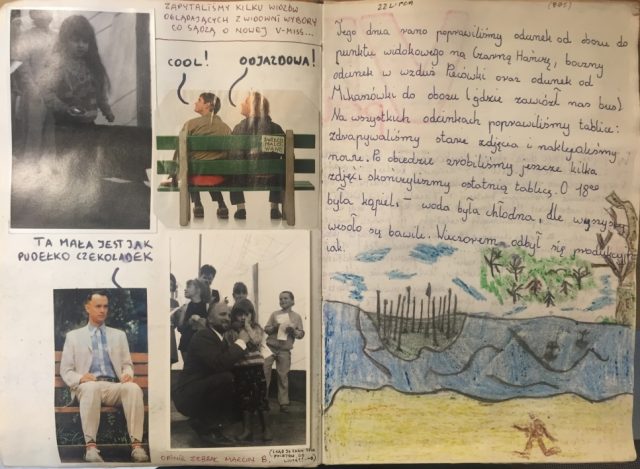 ZAPYTALIŚMY KILKU WIDZÓW
OGLĄDAJĄCYCH Z WIDOWNI WYBORY
CO SĄDZĄ O NOWEJ V-MISS...
COOL!
ODJAZDOWA!
TA MAŁA JEST JAK
PUDEŁKO CZEKOLADEK
OPINIE ZEBRAŁ MARCIN B.
22 LIPCA
Tego dnia rano poprawiliśmy odunek od obozu do
punktu widokowego na Czarną Hańczę, boczny
odunek w wzduż Perówki oraz odunek od
Mikaszówki do obozu (gdzie zawiózł nas bus)
Na wszystkich odcinkach poprawiliśmy tablice:
zdrapywaliśmy stare zdjęcia i naklejaliśmy
nowe. Po obiedzie zrobiliśmy jeszcze kilka
zdjęć i skończyliśmy ostatnią tablicę. O 18⁰⁰
była kąpiel, – woda była chłodna, ale wszyscy
wesoło się bawili. Wieczorem odbył się